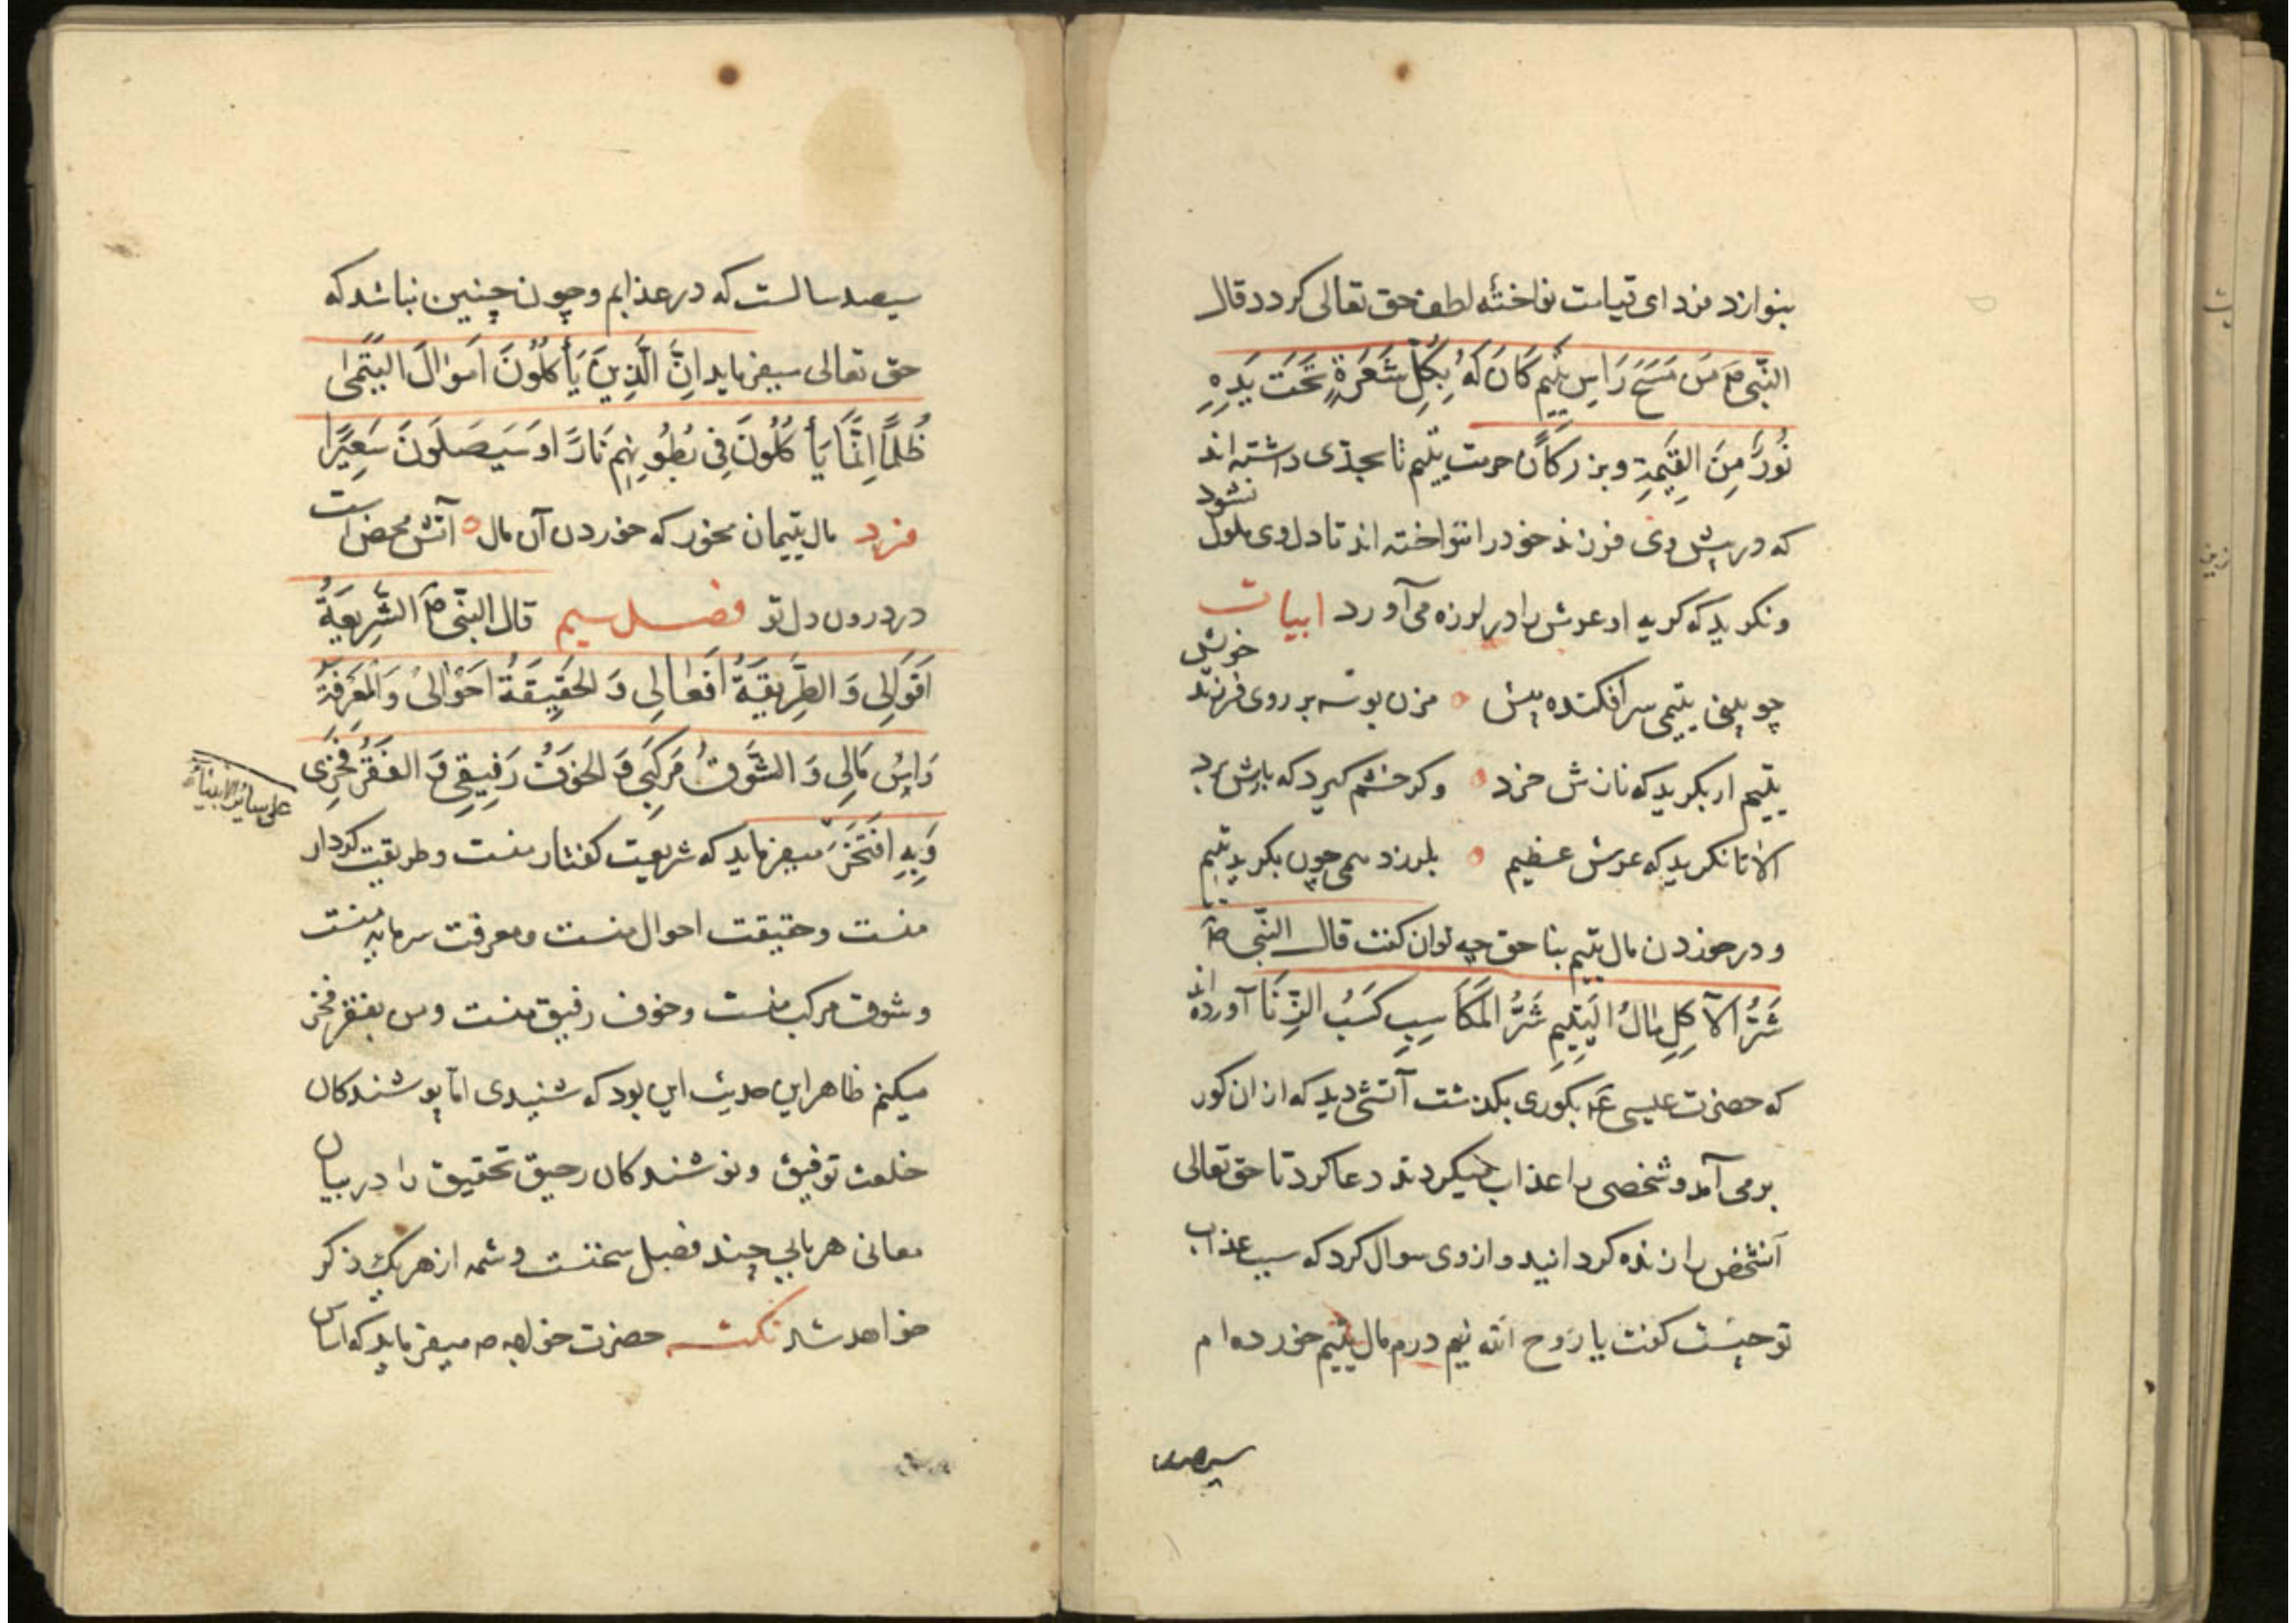 بنوازد فردای قیامت نواختهٔ لطف حق تعالی کردد قال
النّبی صَ مَن مَسَحَ رَاسِ یَتیم کَانَ لَهُ بِکُلِّ شَعَرَةٍ تَحَتَ یَدِهِ
نُورًا مِنَ القِیٰمَةِ و بزرکان حرمت یتیم تا بحدّی داشته اند
که در پیش وی فرزند خود را ننواخته اند تا دل وی ملول نشود
و نکرید که کریه او عرش را در لرزه می آورد ابیات
چو بینی یتیمی سر افکنده پیش ٥ مزن بوسه بر روی فرزند خویش
یتیم ار بکرید که نازش خرد ٥ وکر خشم کیرد که بارش برد
الا تا نکرید که عرش عظیم ٥ بلرزد همی چون بکرید یتیم
و در خوردن مال یتیم بنا حق چه توان کفت قال النّبی صَ
شَرُّ الآکِلِ مالُ الیَتِیمِ شَرُّ المَکَاسِبِ کَسَبُ الزِّنَا آورده اند
که حضرت عیسی عَم بکوری بکذشت آتشی دید که از ان کور
بر می آمد و شخصی را عذاب میکردند دعا کرد تا حق تعالی
آنشخص را زنده کردانید و از وی سوال کرد که سبب عذاب
تو چیست کفت یا رَوح اللّه نیم درم مال یتیم خورده ام
سیصد
سیصد سالست که در عذابم و چون چنین نباشد که
حق تعالی میفرماید انَِّ الَّذِینَ یَأکُلُونَ اَموٰالَ الیَتٰمٰی
ظُلمًا اِنَّمَا یَأکُلُونَ فِی بُطُونِهِم نَارًا وَ سَیَصَلَونَ سَعِیرًا
فرد مال یتیمان مخور که خوردن آن مال ٥ آتش محض است
در درون دل تو فصل سیم قال النّبی صَ الشَّرِیعَةُ
اَقوَالِی وَ الطَّرِیقَةُ اَفعَالِی وَ الحَقِیقَةُ اَحوٰالِی وَ المَعرَفَةُ
رَاسُ مَالِی وَ الشَّوقُ مَرکَبِی وَ الخَوفُ رَفِیقِی وَ الفَقرُ فَخرِی
علی سائر الانبیاء
وَ بِهِ اَفتَخَرُ میفرماید که شریعت کفتار منست و طریقت کردار
منست و حقیقت احوال منست و معرفت سرمایه منست
و شوق مرکب منست و خوف رفیق منست و من بفقر فخر
میکنم ظاهر این حدیث این بود که شنیدی امّا پوشندکان
خلعت توفیق و نوشندکان رحیق تحقیق را در بیان
معانی هر بابی چند فصل سخنست و شمه از هر یک ذکر
خواهد شد نکته حضرت خواجه صه میفرماید که اساس